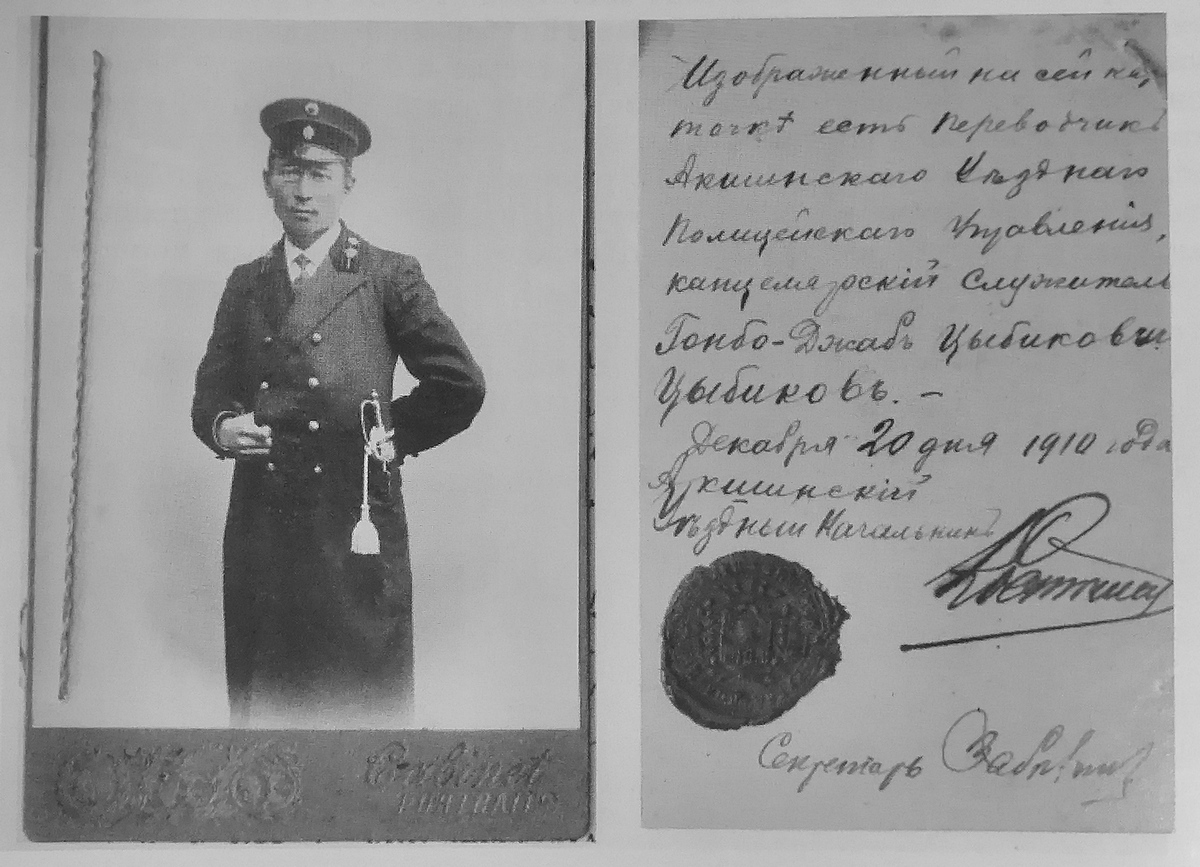 Cabinet
Portrait
Изображенный на сей кар
точкѣ есть переводчикъ
Акшинскаго Уѣзднаго
Полицейскаго Управленія,
канцелярскій служитель
Гонбо-Джабъ Цыбиковичъ
Цыбиковъ. —
Декабря 20 дня 1910 года
Акшинскій
Уѣздный Начальникъ
Секретарь